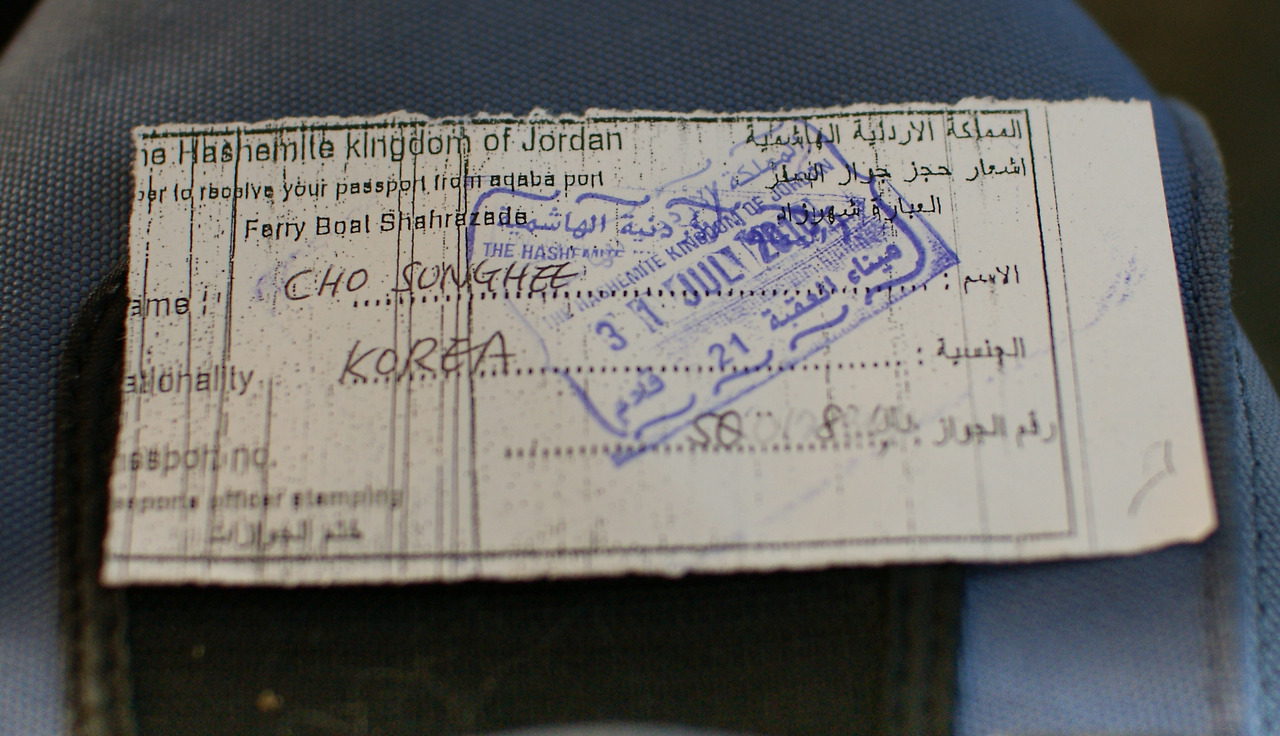 he Hashemite kingdom of Jordan
المملكة الاردنية الهاشمية
to receive your passport from aqaba port
اشعار حجز جواز السفر
Ferry Boat Shahrazade
العبارة شهرزاد
ame : CHO SUNGHEE الاسم :
ationality KOREA الجنسية :
assport no. رقم الجواز
assports officer stamping
ختم الجوازات
THE HASHEMITE KINGDOM OF JORDAN
31 JUL
ميناء العقبة
21
قادم